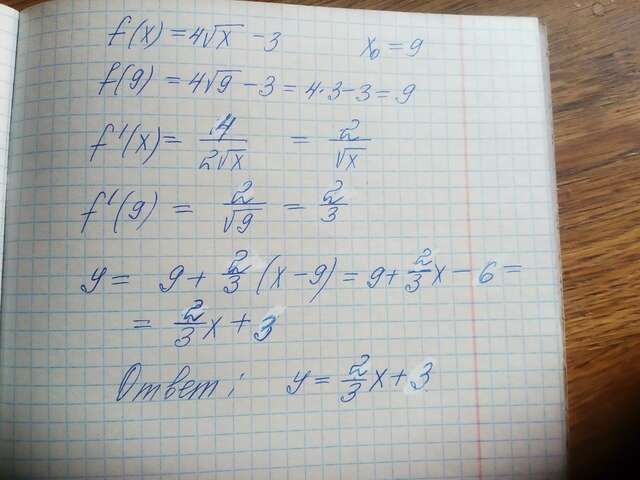 f(x) = 4√x - 3    x₀ = 9
f(9) = 4√9 - 3 = 4·3 - 3 = 9
f'(x) = 4/(2√x) = 2/√x
f'(9) = 2/√9 = 2/3
y = 9 + 2/3 (x - 9) = 9 + 2/3 x - 6 =
= 2/3 x + 3
Ответ: y = 2/3 x + 3